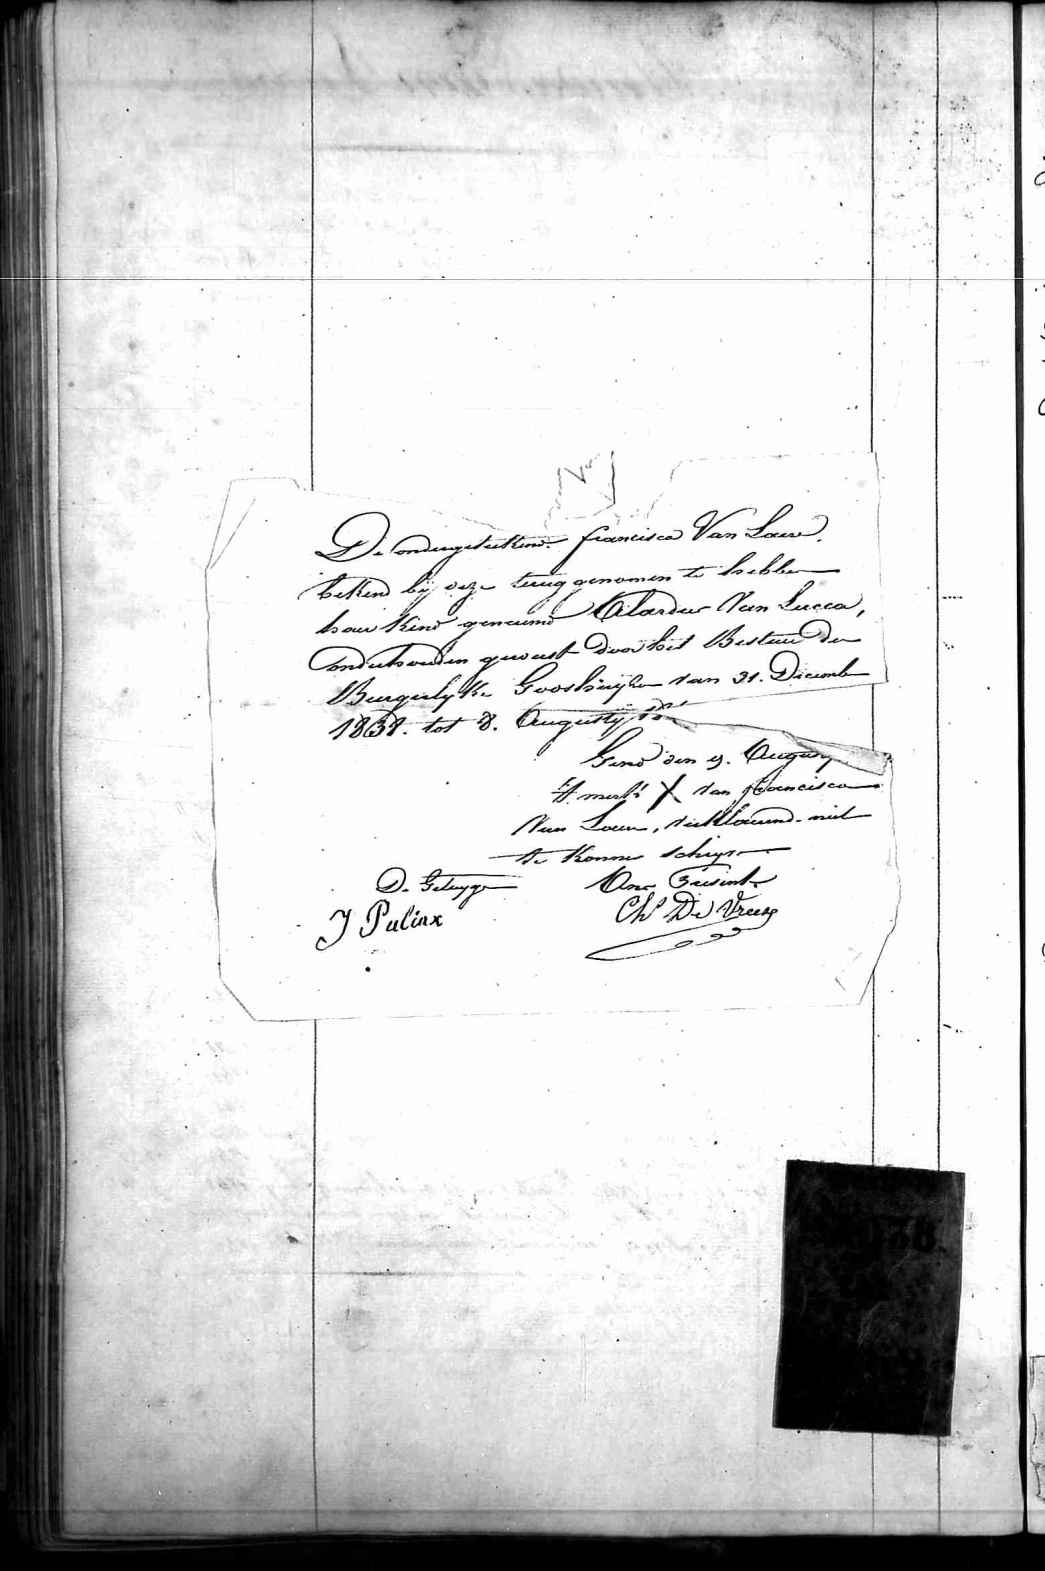 De ondergeteekende francisca Van Lauw.
bekend bij deze terug genomen te hebben
haar kind genaamd Van Lucca,
onderhouden geweest door het Bestuur der
Burgerlyke Godshuijzen van 31. December
1838. tot 8. Augusty
Gend den 9. Augusty
't merk X van francisca
Van Lauw, verklaerend niet
te konnen schryven
De Getuyge
J Pulinx
Chs De Vreese